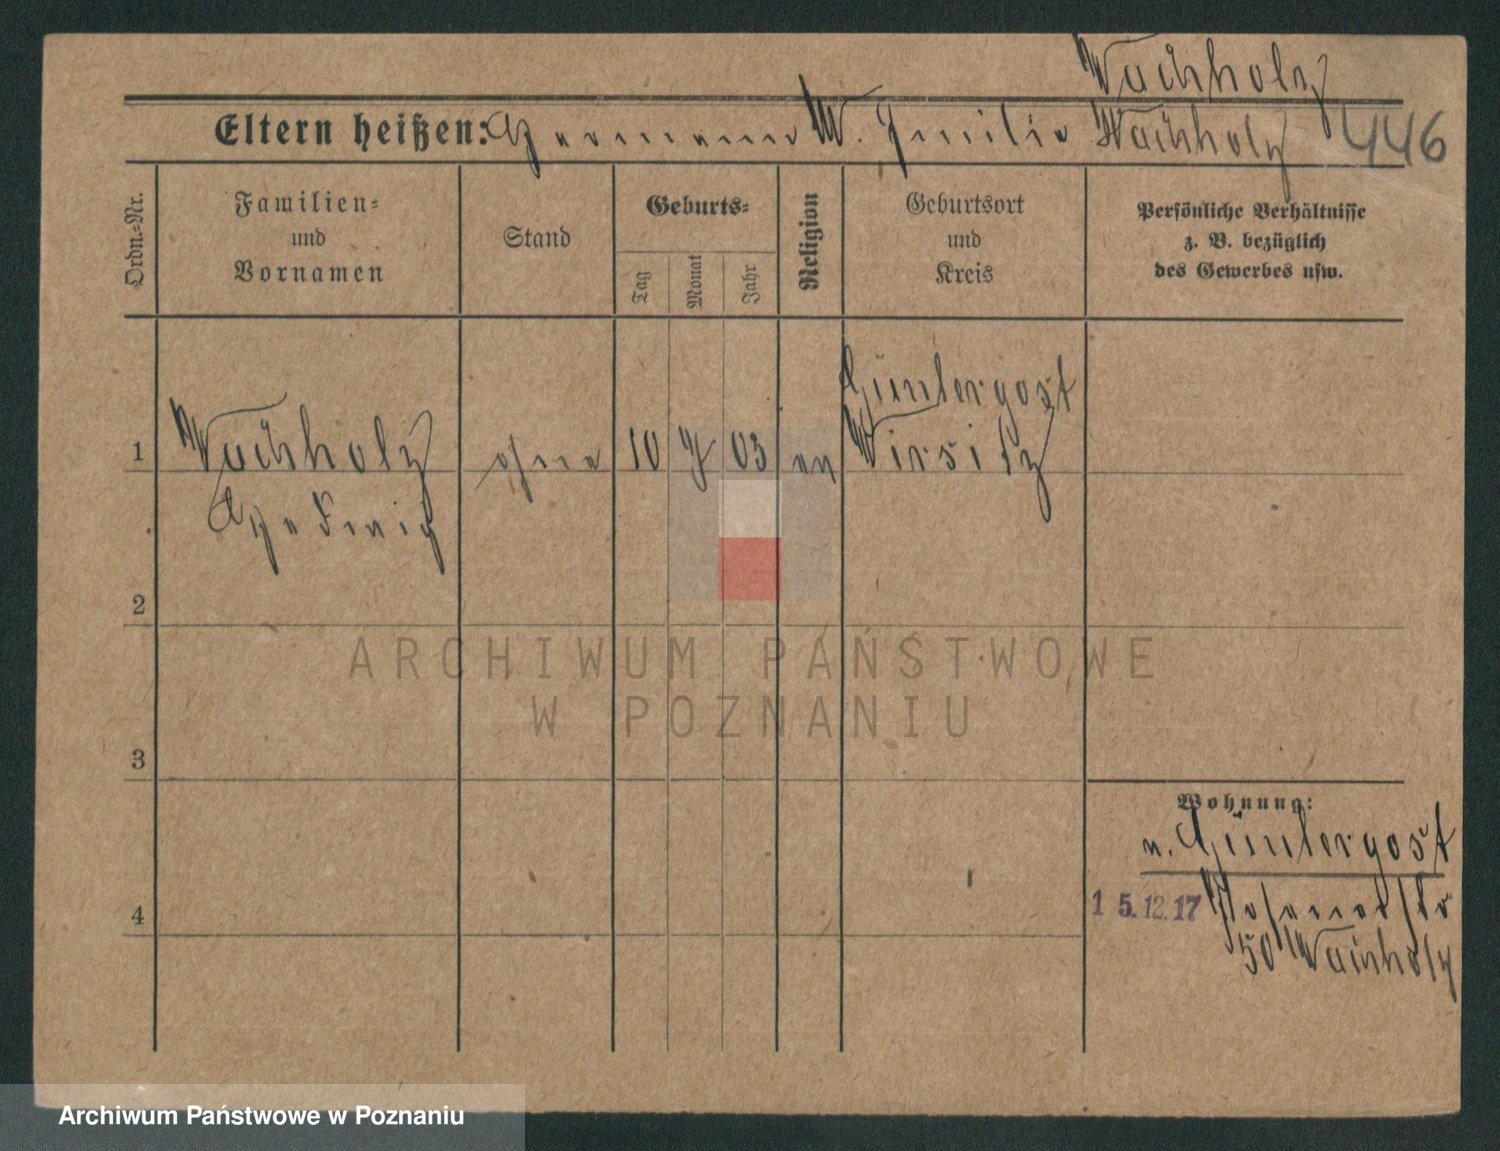 Wachholz
Eltern heißen: Hermann W. Emilie Wachholz 446
Ordn.=Nr.
Familien=
und
Vornamen
Stand
Geburts=
Tag
Monat
Jahr
Religion
Geburtsort
und
Kreis
Persönliche Verhältnisse
z. B. bezüglich
des Gewerbes usw.
Güntergost
1 Wachholz ohne 10 03 ev Wirsitz
2
3
4
Wohnung:
n. Güntergost
15.12.17 Posenerstr
50 Wachholz
ARCHIWUM PAŃSTWOWE
W POZNANIU
Archiwum Państwowe w Poznaniu